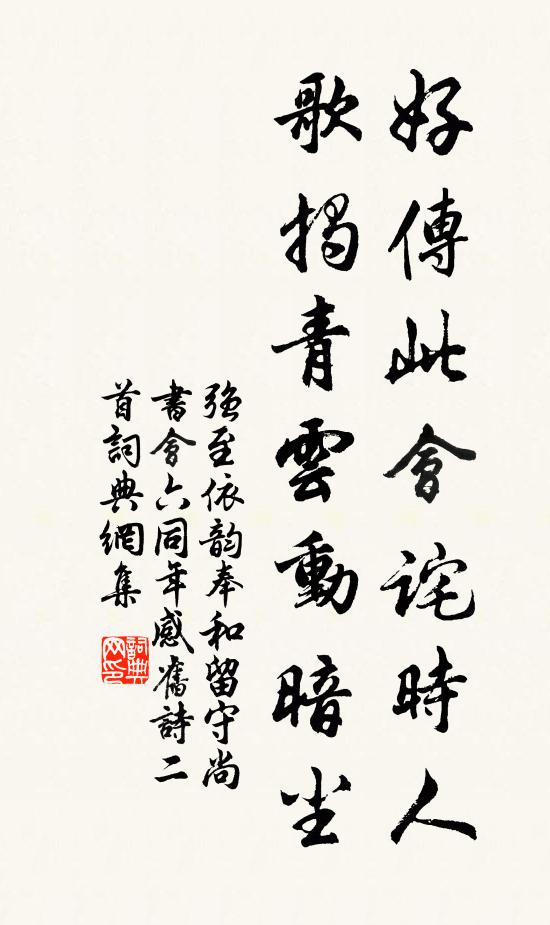 好傳此會詫時人
歌揭青雲動暗尘
强至依韵奉和留守尚
書會六同年感舊詩二
首詞典網集
詞典
网印